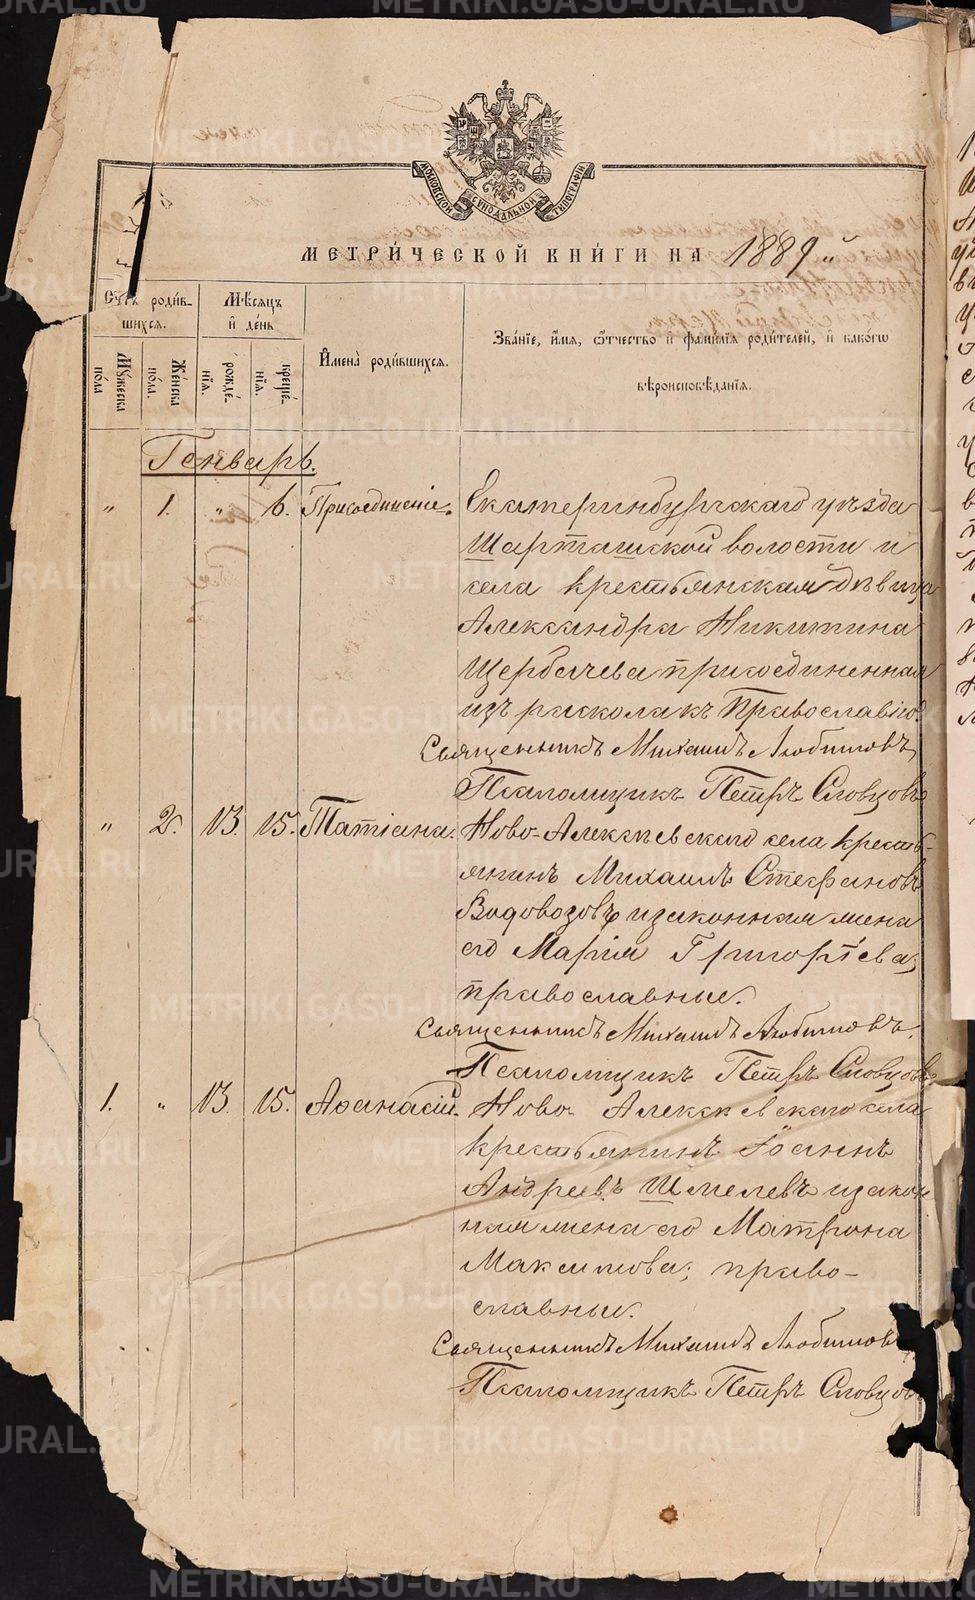 МОСКОВСКОЙ СѴНОДАЛЬНОЙ ТИПОГРАФІИ
МЕТРИ́ЧЕСКОЙ КНИ́ГИ НА 1889 й
Счетъ роди́вшихся.
Мѣ́сяцъ и де́нь
Имена̀ роди́вшихся.
Зва́нїе, и́мя, ѻ҆́тчество и фами́лїя роди́телей, и како́гѡ вѣроисповѣ́данїя.
Му́жеска по́ла
Же́нска по́ла.
рожде́нїя.
креще́нїя.
Генварь.
" 1. " 6. Присоединеніе. Екатеринбургскаго уѣзда
Шарташской волости и
села крестьянская дѣвица
Александра Никитина
Щербачева присоединенная
изъ раскола къ Православію.
Священникъ Михаилъ Любимовъ
Псаломщикъ Петръ Словцовъ
" 2. 13. 15. Татіана. Ново-Алексѣевскаго села кресть-
янинъ Михаилъ Стефановъ
Водовозовъ и законная жена
его Марія Григоріева;
православные.
Священникъ Михаилъ Любимовъ.
Псаломщикъ Петръ Словцовъ
1. " 13. 15. Аѳанасій. Ново-Алексѣевскаго села
крестьянинъ Іоаннъ
Андреевъ Шмелевъ и закон
ная жена его Матрона
Максимова; право-
славные.
Священникъ Михаилъ Любимовъ
Псаломщикъ Петръ Словцовъ
METRIKI.GASO-URAL.RU